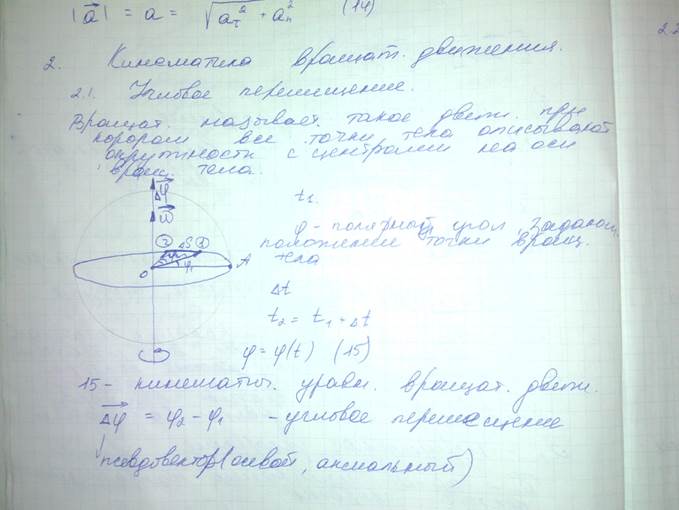 |a⃗| = a = √(aτ² + aₙ²) (14)
2. Кинематика вращат. движения.
2.1. Угловое перемещение.
Вращат. называет. такое движ. при
котором все точки тела описывают
окружности с центрами на оси
вращ. тела.
Δφ⃗
ω⃗
t₁.
φ - полярный угол, задающ.
положение точки вращ.
тела
② ΔS ①
φ₁
O
A
Δt
t₂ = t₁ + Δt
φ = φ(t) (15)
15 - кинематич. уравн. вращат. движ.
Δφ⃗ = φ₂ - φ₁ - угловое перемещение
псевдовектор (осевой, аксиальный)
2.2